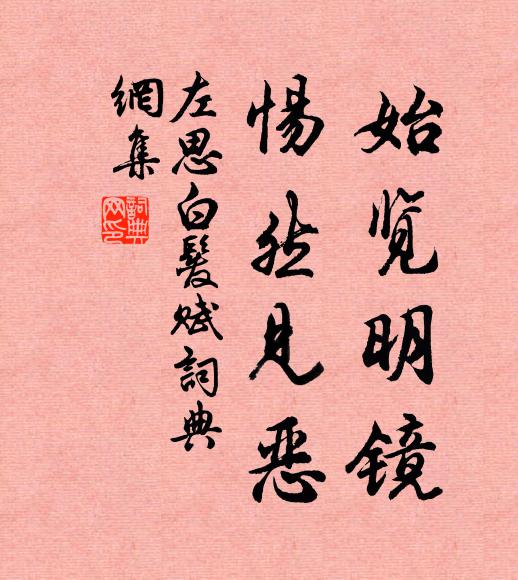 始览明镜
惕然见恶
左思白髮赋詞典
網集
詞典
网印